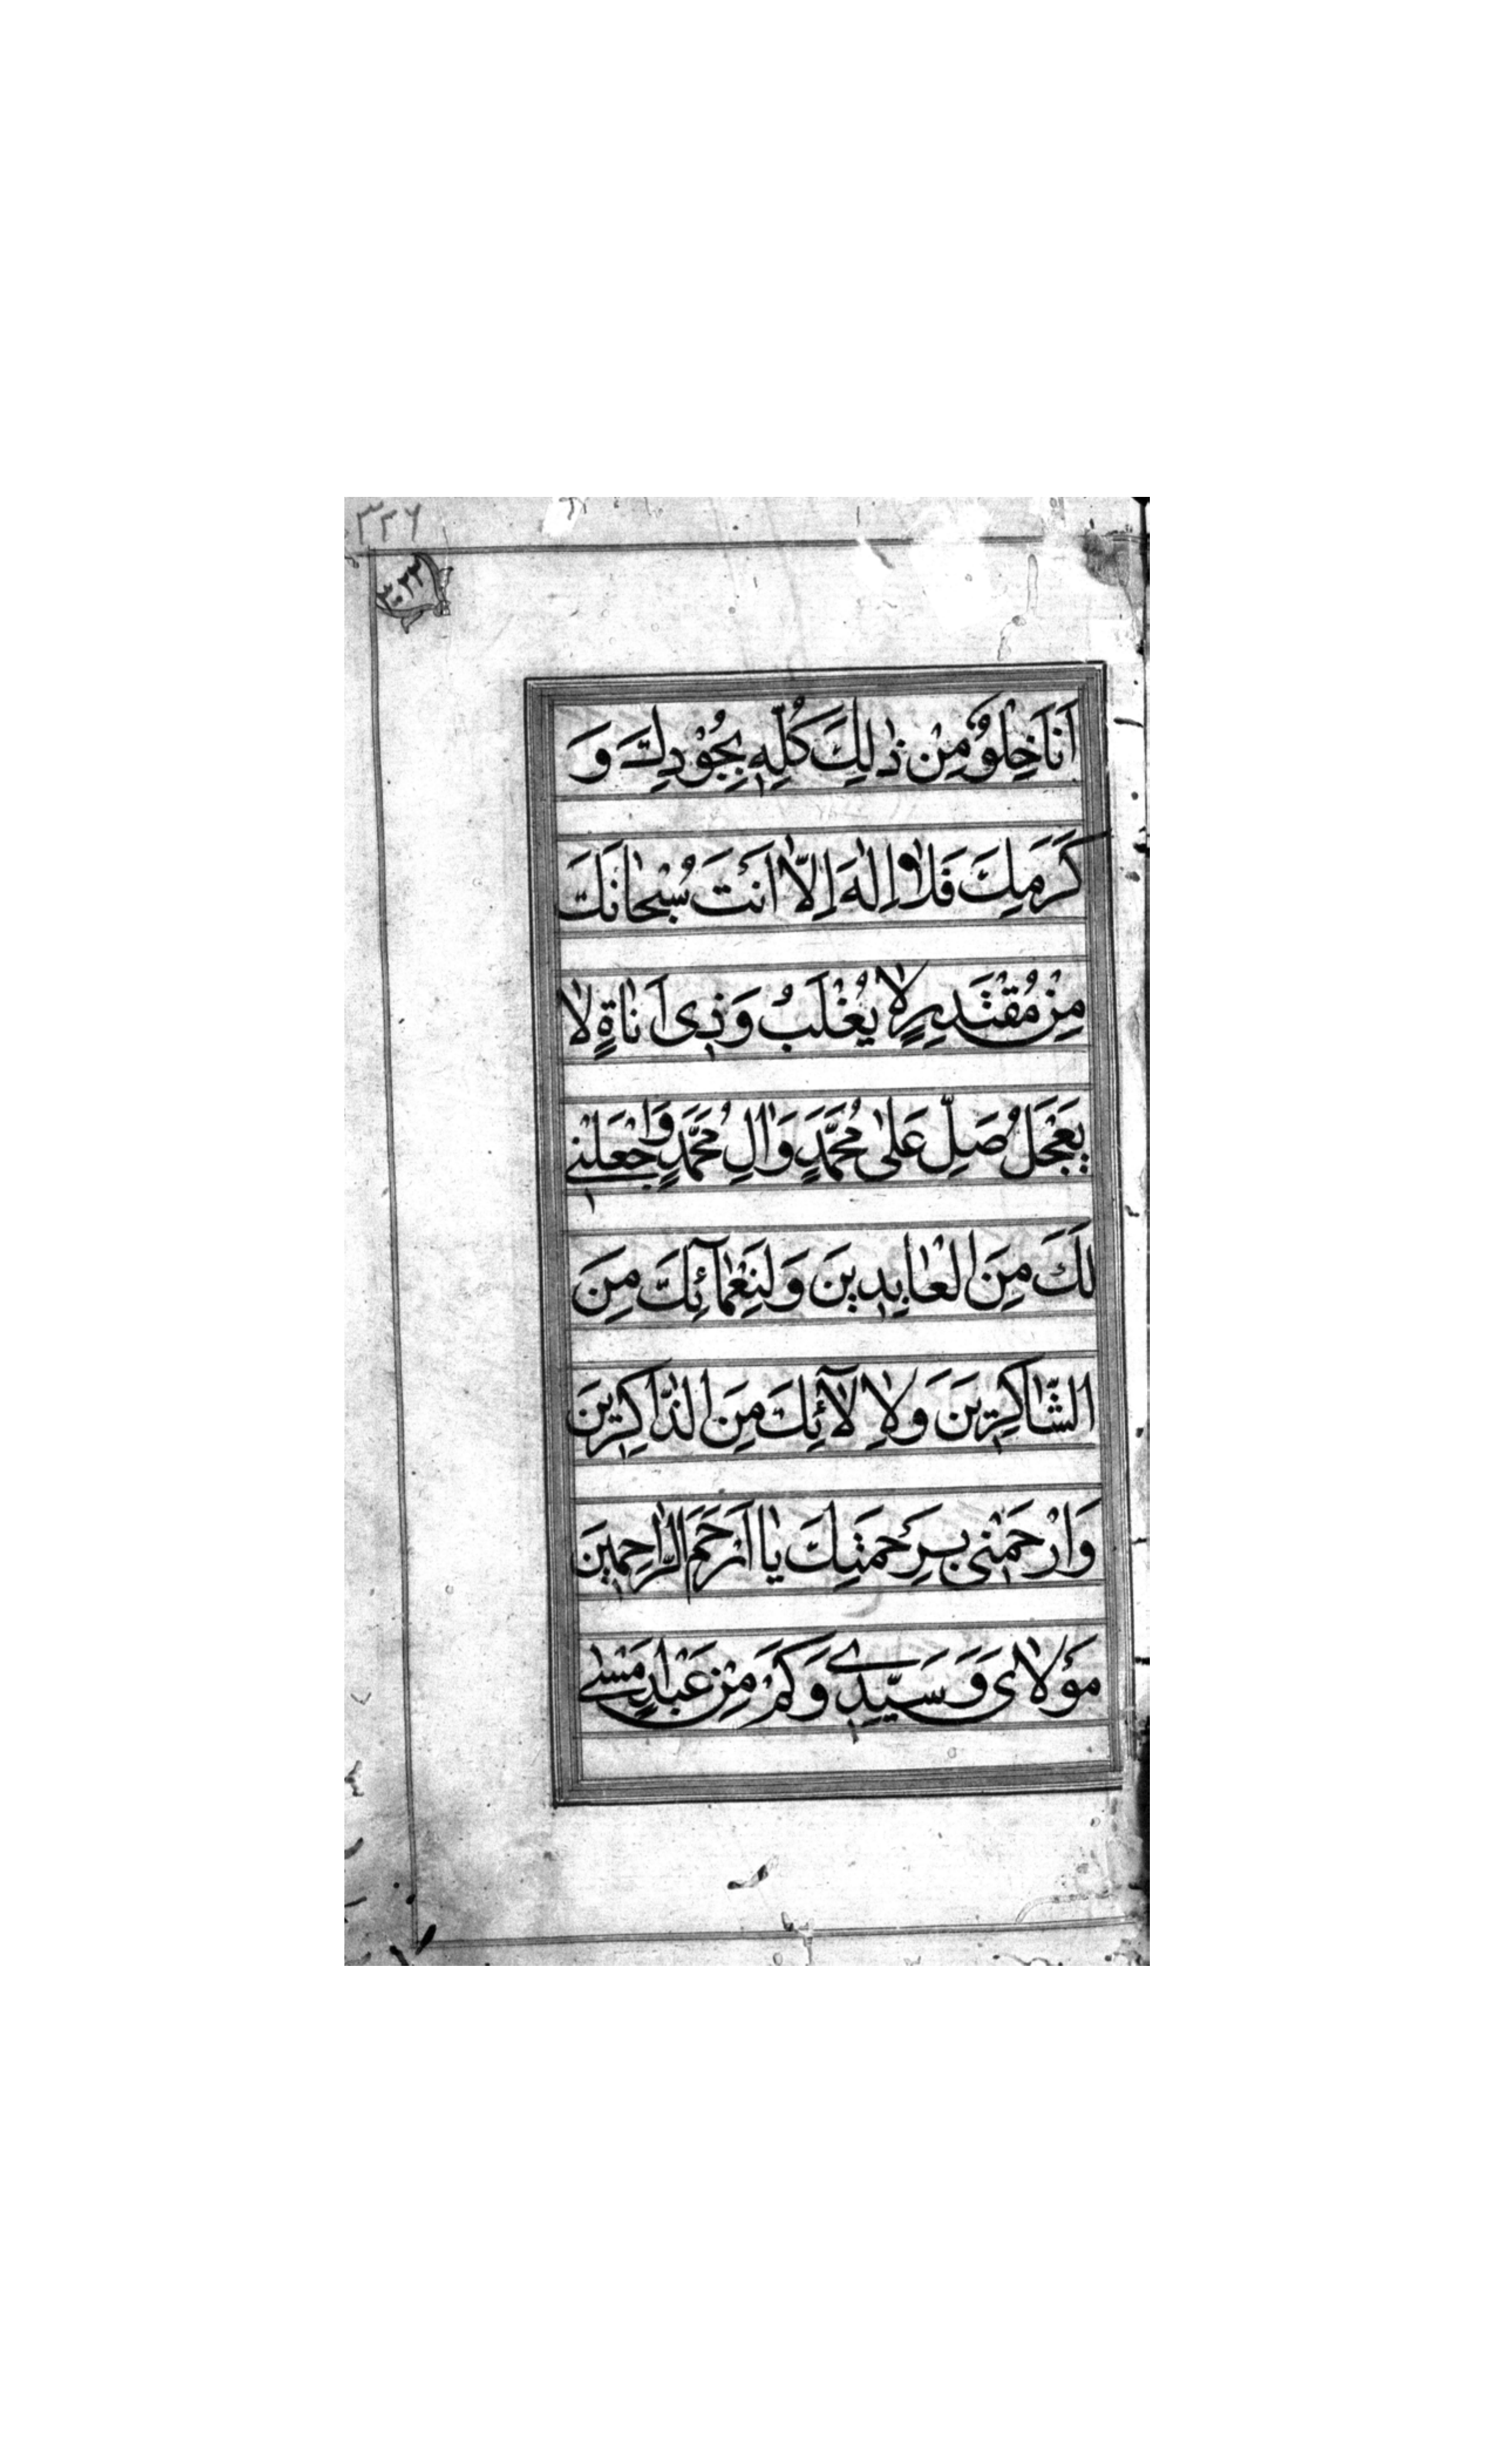 ٣٣٦
اَنَا خِلْوٌ مِنْ ذٰلِكَ كُلِّهِ بِجُوْدِكَ وَ
كَرَمِكَ فَلاٰ اِلٰهَ اِلاّٰ اَنْتَ سُبْحٰانَكَ
مِنْ مُقْتَدِرٍ لاٰ يُغْلَبُ وَذِى اَنٰاةٍ لاٰ
يَعْجَلُ صَلِّ عَلىٰ مُحَمَّدٍ وَاٰلِ مُحَمَّدٍ وَاجْعَلْنِى
لَكَ مِنَ الْعٰابِدِينَ وَلِنَعْمٰآئِكَ مِنَ
الشّٰاكِرِينَ وَلاِلآٰئِكَ مِنَ الذّٰاكِرِينَ
وَارْحَمْنِى بِرَحْمَتِكَ يٰا اَرْحَمَ الرّٰاحِمِينَ
مَوْلاٰىَ وَسَيِّدِى وَكَمْ مِنْ عَبْدٍ اَمْسٰى